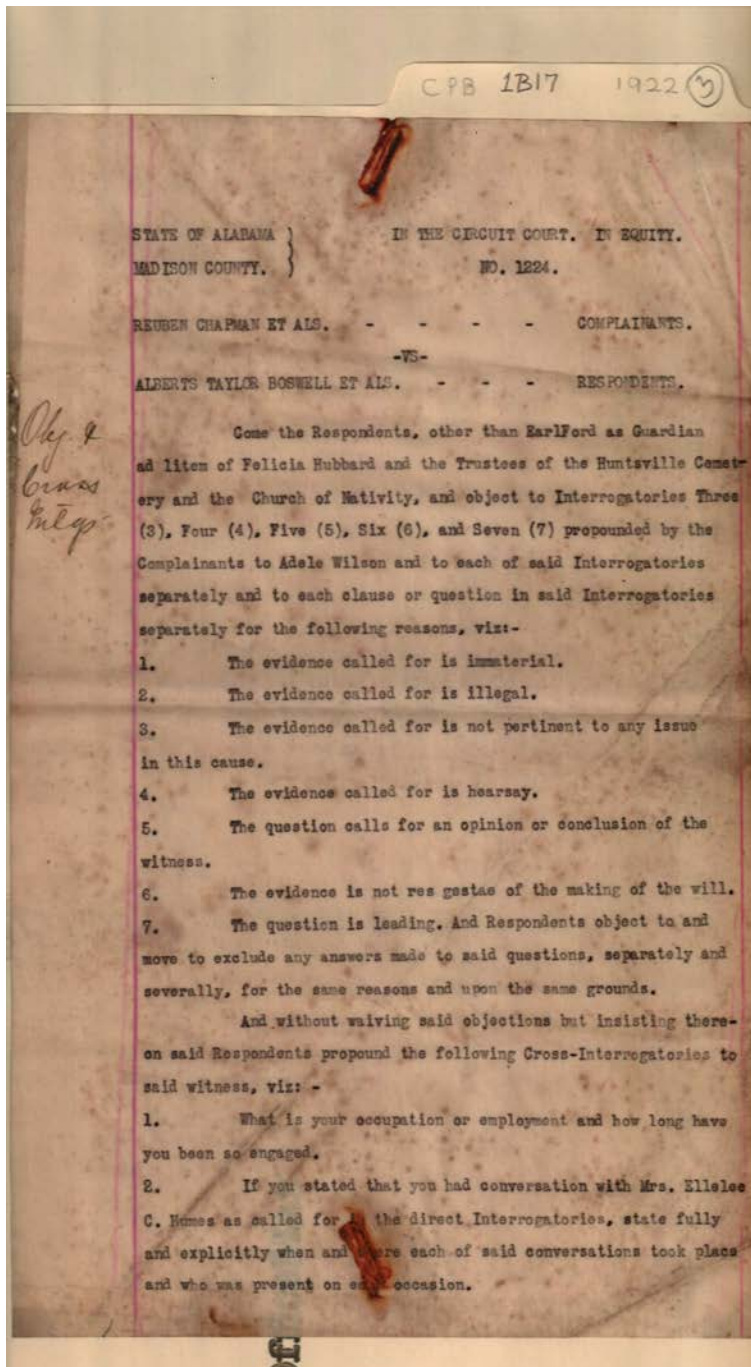 CPB 1B17 1922 3
STATE OF ALABAMA } IN THE CIRCUIT COURT. IN EQUITY.
MADISON COUNTY. } NO. 1224.
REUBEN CHAPMAN ET ALS. - - - - COMPLAINANTS.
-VS-
ALBERTS TAYLOR BOSWELL ET ALS. - - - RESPONDENTS.
Obj. &
Cross
Intgs
Come the Respondents, other than EarlFord as Guardian
ad litem of Felicia Hubbard and the Trustees of the Huntsville Cemet-
ery and the Church of Nativity, and object to Interrogatories Three
(3), Four (4), Five (5), Six (6), and Seven (7) propounded by the
Complainants to Adele Wilson and to each of said Interrogatories
separately and to each clause or question in said Interrogatories
separately for the following reasons, viz:-
1. The evidence called for is immaterial.
2. The evidence called for is illegal.
3. The evidence called for is not pertinent to any issue
in this cause.
4. The evidence called for is hearsay.
5. The question calls for an opinion or conclusion of the
witness.
6. The evidence is not res gestae of the making of the will.
7. The question is leading. And Respondents object to and
move to exclude any answers made to said questions, separately and
severally, for the same reasons and upon the same grounds.
And without waiving said objections but insisting there-
on said Respondents propound the following Cross-Interrogatories to
said witness, viz: -
1. What is your occupation or employment and how long have
you been so engaged.
2. If you stated that you had conversation with Mrs. Ellelee
C. Humes as called for the direct Interrogatories, state fully
and explicitly when and each of said conversations took place
and who was present on occasion.